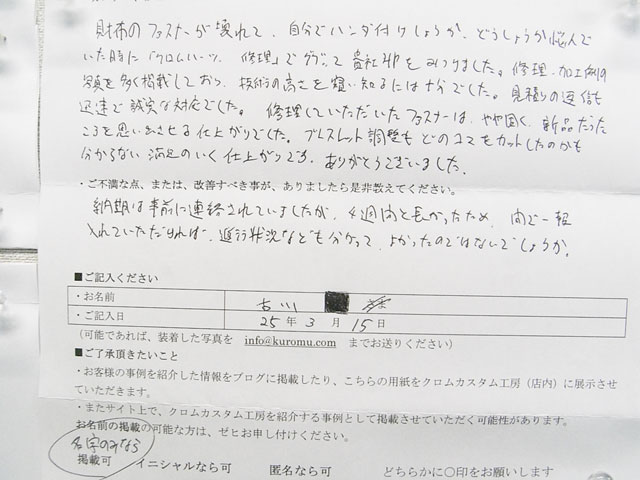 財布のファスナーが壊れて、自分でハンダ付けしようか、どうしようか悩んで
いた時に「クロムハーツ 修理」でググって貴社HPをみつけました。修理・加工例の
写真を多く掲載しており、技術の高さを窺い知るには十分でした。見積りの返信も
迅速で誠実な対応でした。修理していただいたファスナーは、やや固く、新品だった
ころを思い出させる仕上がりでした。ブレスレット調整もどのコマをカットしたのかも
分からない満足のいく仕上がりです。ありがとうございました。
・ご不満な点、または、改善すべき事が、ありましたら是非教えてください。
納期は事前に連絡されていましたが、4週間と長かったため、間で一報
入れていただければ、進行状況なども分かって、よかったのではないでしょうか。
■ご記入ください
・お名前 古川 さま
・ご記入日 25年3月15日
(可能であれば、装着した写真を info@kuromu.com までお送りください)
■ご了承頂きたいこと
・お客様の事例を紹介した情報をブログに掲載したり、こちらの用紙をクロムカスタム工房(店内)に展示させ
ていただきます。
・またサイト上で、クロムカスタム工房を紹介する事例として掲載させていただく可能性があります。
お名前の掲載の可能な方は、ゼヒお申し付けください。
名字のみなら
掲載可 イニシャルなら可 匿名なら可 どちらかに○印をお願いします